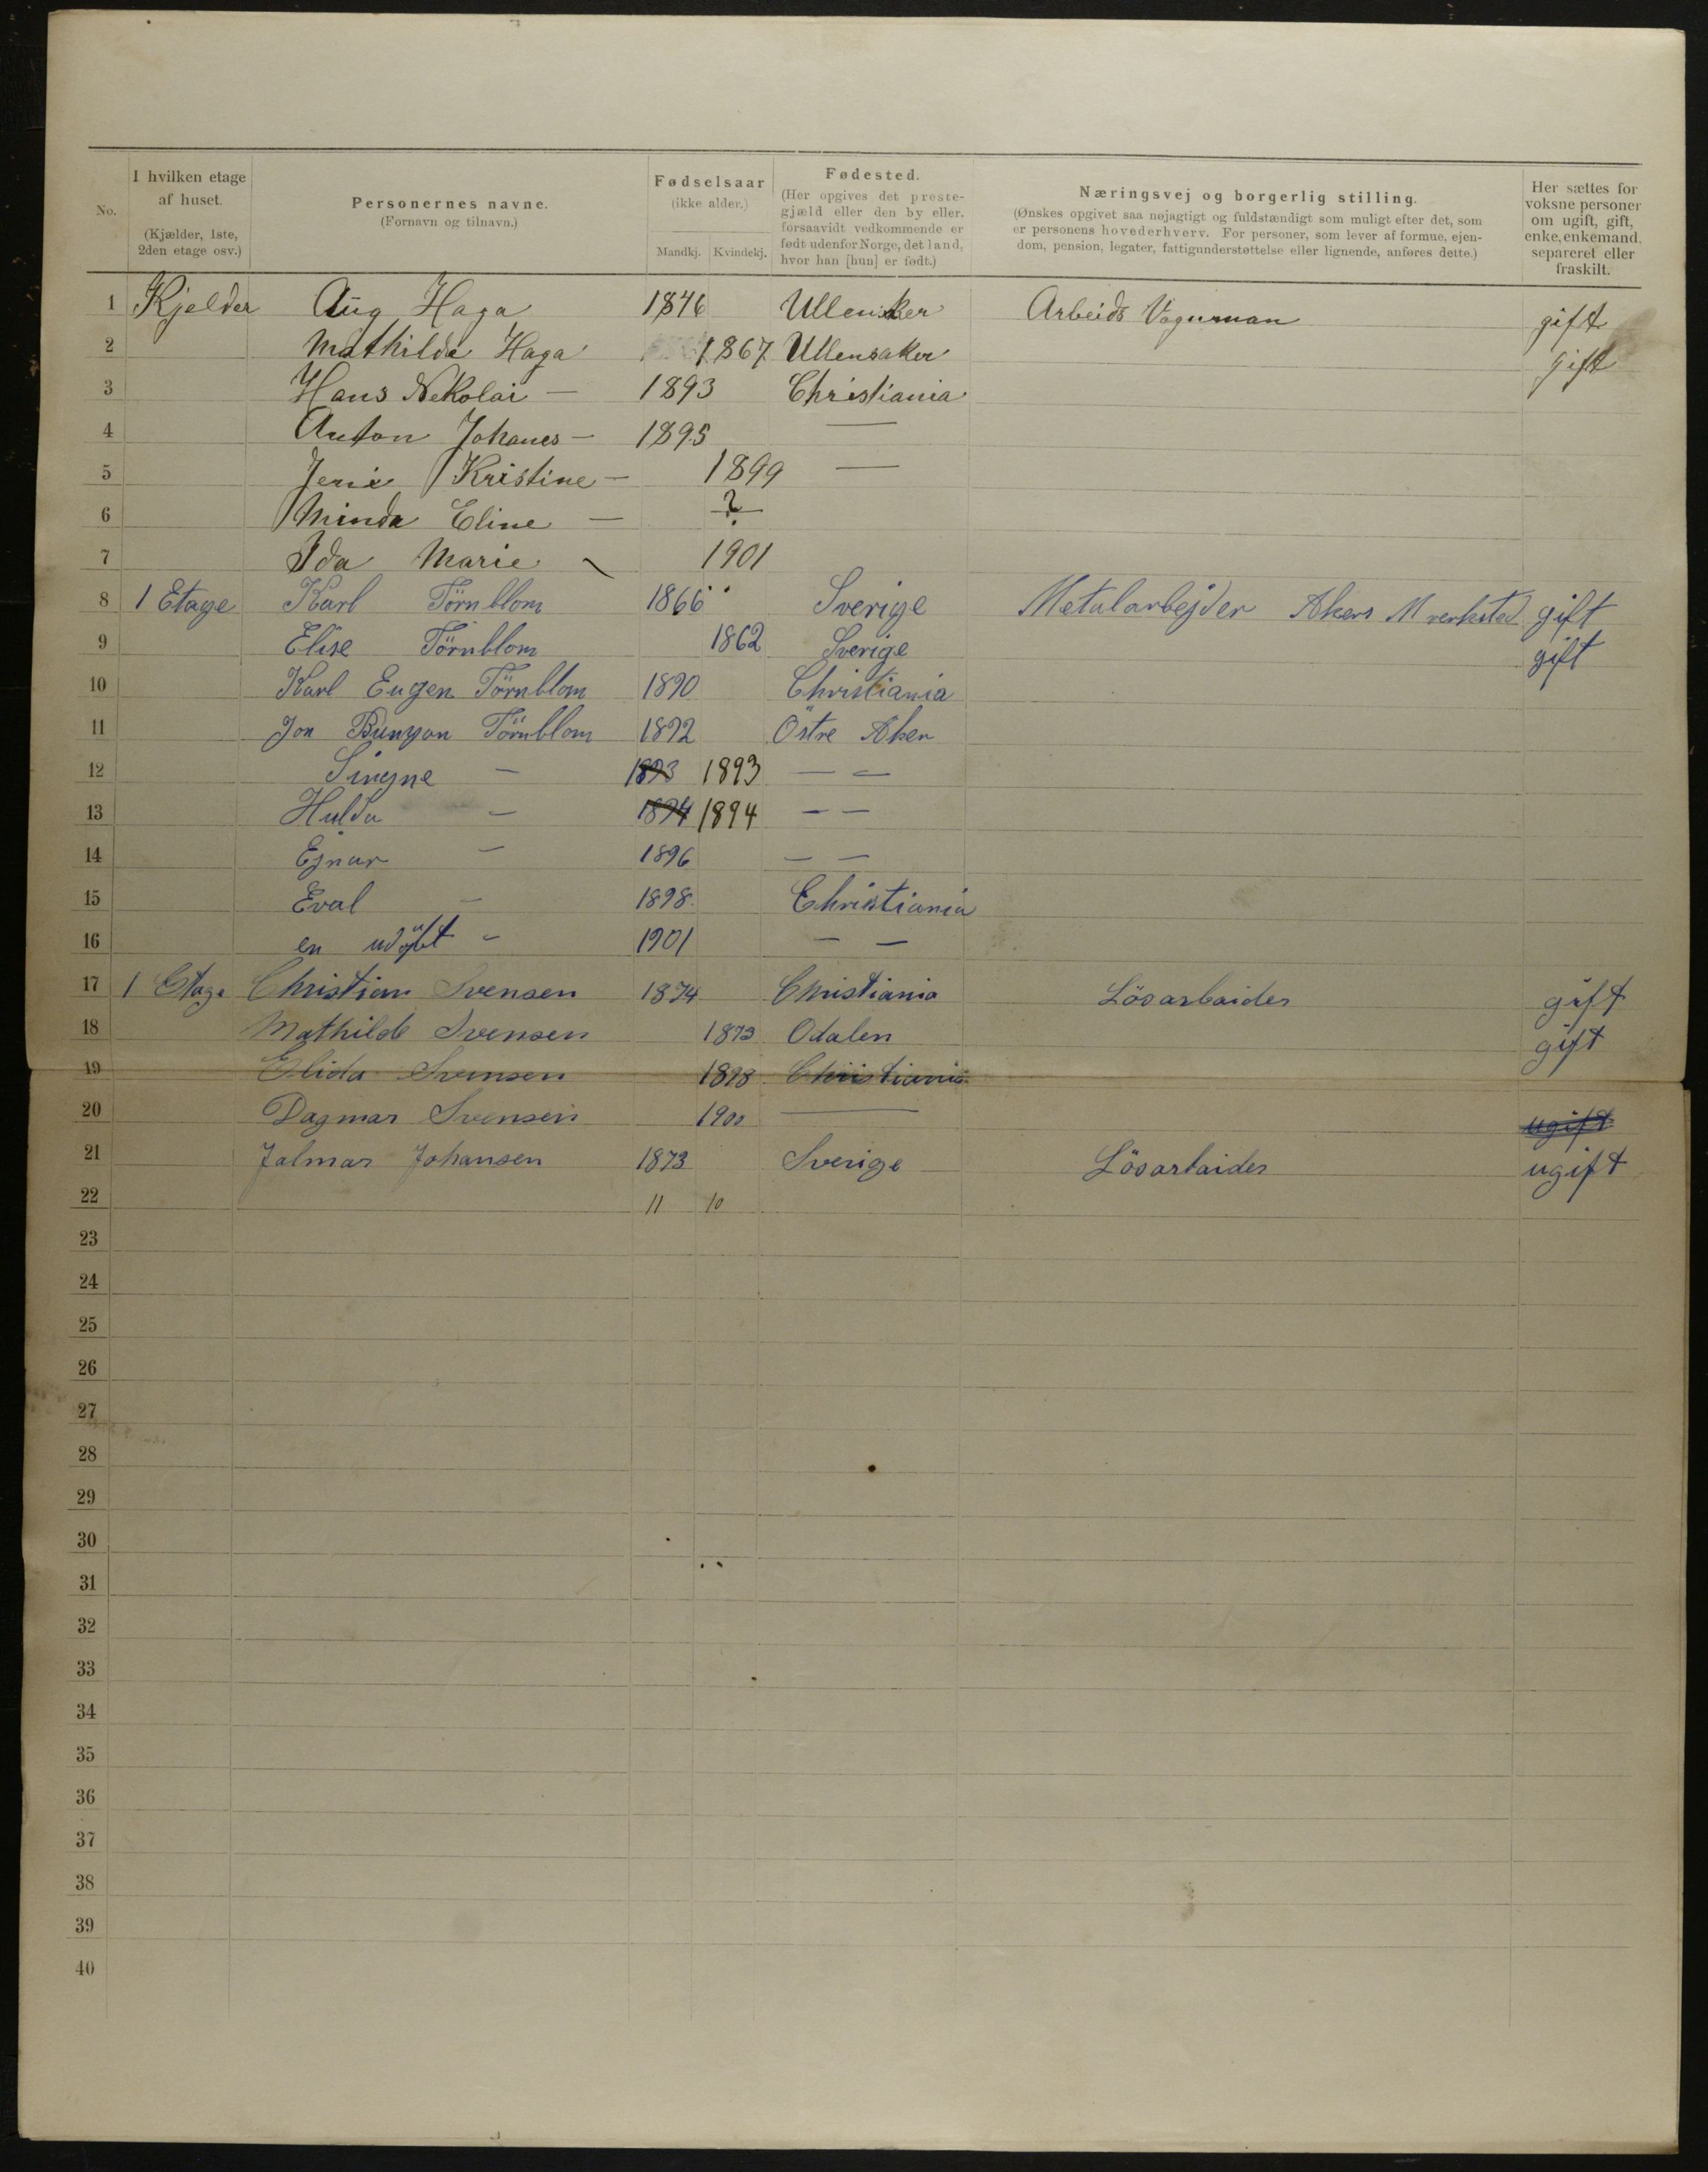 No. I hvilken etage af huset. (Kjælder, 1ste, 2den etage osv.) Personernes navne. (Fornavn og tilnavn.) Fødselsaar (ikke alder.) Mandkj. Kvindekj. Fødested. (Her opgives det prestegjæld eller den by eller, forsaavidt vedkommende er født udenfor Norge, det land, hvor han [hun] er født.) Næringsvej og borgerlig stilling. (Ønskes opgivet saa nøjagtigt og fuldstændigt som muligt efter det, som er personens hovederhverv. For personer, som lever af formue, ejendom, pension, legater, fattigunderstøttelse eller lignende, anføres dette.) Her sættes for voksne personer om ugift, gift, enke, enkemand, separeret eller fraskilt.
1 Kjelder Aug Haga 1846 Ullensker Arbeids Vognman gift
2 Mathilde Haga 1867 Ullensaker gift
3 Hans Nekolai — 1893 Christiania
4 Anton Johanes — 1895 —
5 Kristine — 1899 —
6 Minda Eline — ?
7 Ida Marie — 1901
8 1 Etage Karl Törnblom 1866 Sverige Metalarbejder Akers M verksted gift
9 Elise Törnblom 1862 Sverige gift
10 Karl Eugen Törnblom 1890 Christiania
11 Jon Bunyan Törnblom 1892 Östre Aker
12 Singne — 1893 1893 — —
13 Hulda — 1894 1894 — —
14 Ejnar — 1896 — —
15 Eval — 1898 Christiania
16 en udöbt — 1901 — —
17 1 Etage Christian Svensen 1874 Christiania Lösarbaider gift
18 Mathilde Svensen 1873 Odalen gift
19 Elida Svensen 1898 Christiania
20 Dagmar Svensen 1900 — ugift
21 Jalmar Johansen 1873 Sverige Lösarbaider ugift
22 11 10
23
24
25
26
27
28
29
30
31
32
33
34
35
36
37
38
39
40